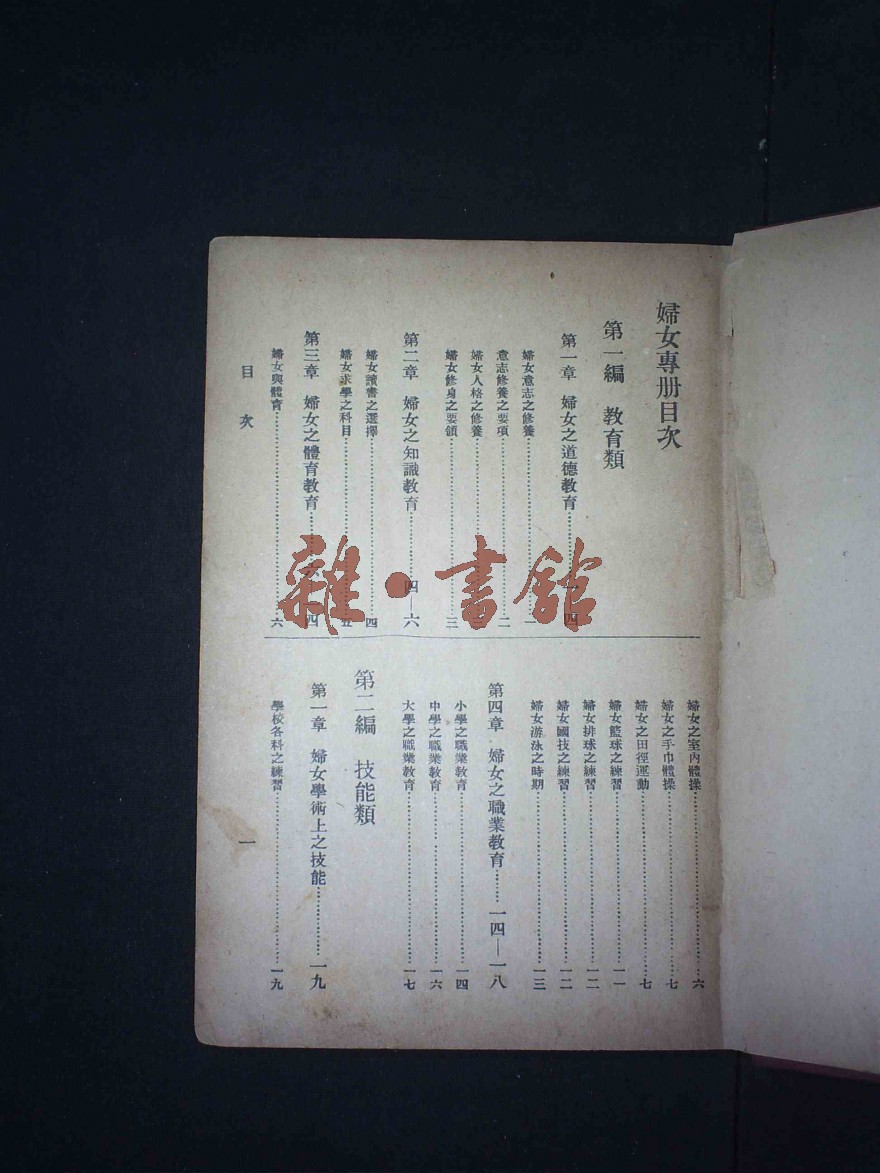 婦女專册目次
第一編 教育類
第一章 婦女之道德教育
婦女意志之修養 一
意志修養之要項 二
婦女人格之修養
婦女修身之要領 三
第二章 婦女之知識教育 四—六
婦女讀書之選擇 四
婦女求學之科目 五
第三章 婦女之體育教育
婦女與體育 六
婦女之室內體操 六
婦女之手巾體操 七
婦女之田徑運動 七
婦女籃球之練習 一一
婦女排球之練習 一二
婦女國技之練習 一二
婦女游泳之時期 一三
第四章 婦女之職業教育 一四—一八
小學之職業教育 一四
中學之職業教育 一六
大學之職業教育 一七
第二編 技能類
第一章 婦女學術上之技能 一九
學校各科之練習 一九
目次 一
雜·書館